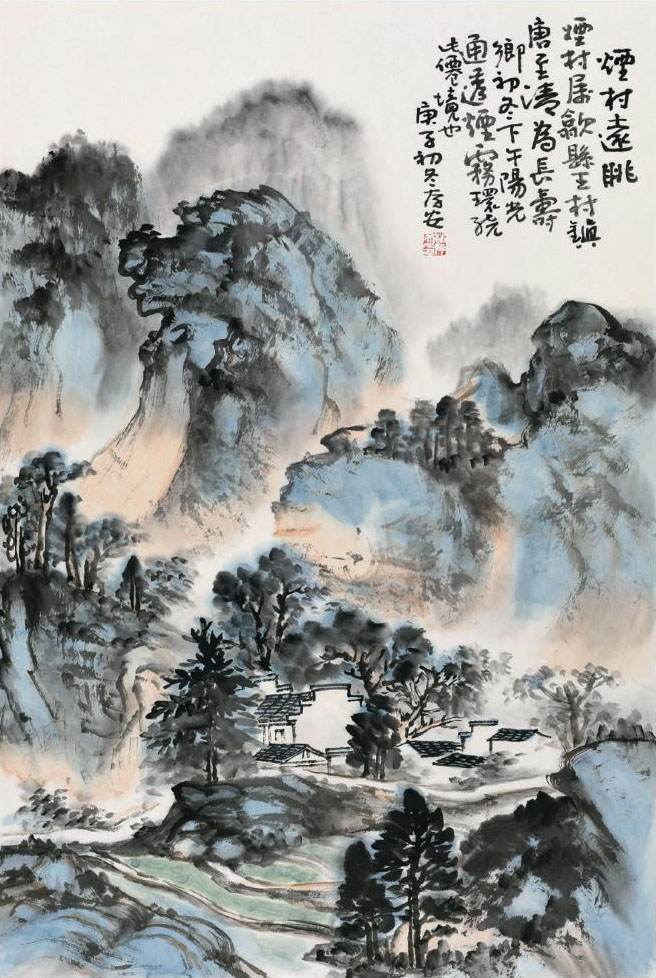 煙村遠眺
煙村屬歙縣王村鎮
唐至清為長壽
鄉初冬下午陽光
通透煙霧環繞
此僊境也
庚子初冬